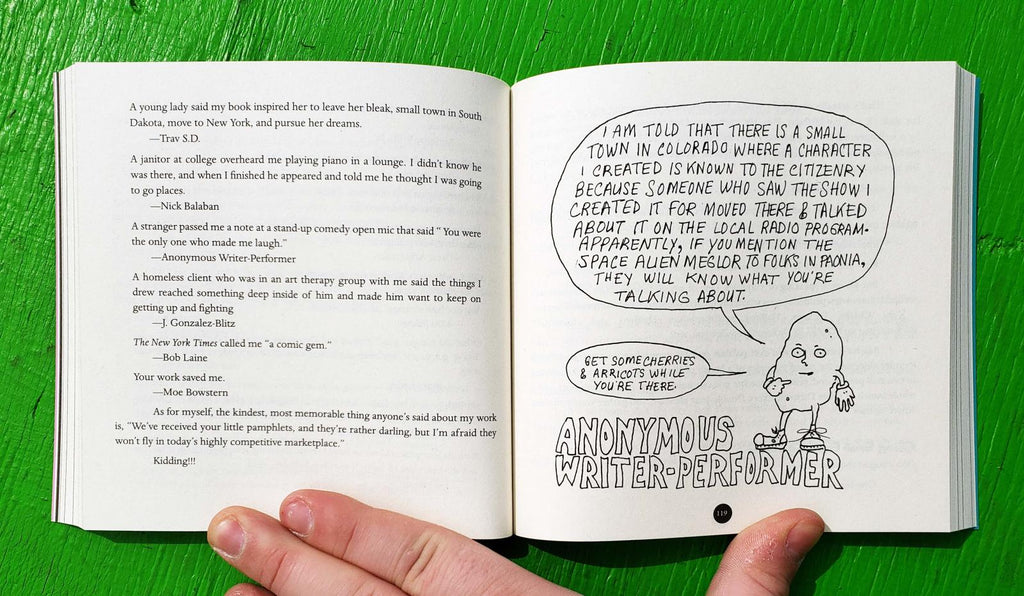 A young lady said my book inspired her to leave her bleak, small town in South
Dakota, move to New York, and pursue her dreams.
—Trav S.D.
A janitor at college overheard me playing piano in a lounge. I didn't know he
was there, and when I finished he appeared and told me he thought I was going
to go places.
—Nick Balaban
A stranger passed me a note at a stand-up comedy open mic that said “ You were
the only one who made me laugh.”
—Anonymous Writer-Performer
A homeless client who was in an art therapy group with me said the things I
drew reached something deep inside of him and made him want to keep on
getting up and fighting
—J. Gonzalez-Blitz
The New York Times called me “a comic gem.”
—Bob Laine
Your work saved me.
—Moe Bowstern
As for myself, the kindest, most memorable thing anyone's said about my work
is, “We've received your little pamphlets, and they're rather darling, but I'm afraid they
won't fly in today's highly competitive marketplace.“
Kidding!!!
I AM TOLD THAT THERE IS A SMALL
TOWN IN COLORADO WHERE A CHARACTER
I CREATED IS KNOWN TO THE CITIZENRY
BECAUSE SOMEONE WHO SAW THE SHOW I
CREATED IT FOR MOVED THERE & TALKED
ABOUT IT ON THE LOCAL RADIO PROGRAM.
APPARENTLY, IF YOU MENTION THE
SPACE ALIEN MEGLOR TO FOLKS IN PAONIA,
THEY WILL KNOW WHAT YOU'RE
TALKING ABOUT.
GET SOME CHERRIES
& ARRICOTS WHILE
YOU'RE THERE.
ANONYMOUS
WRITER-PERFORMER
119